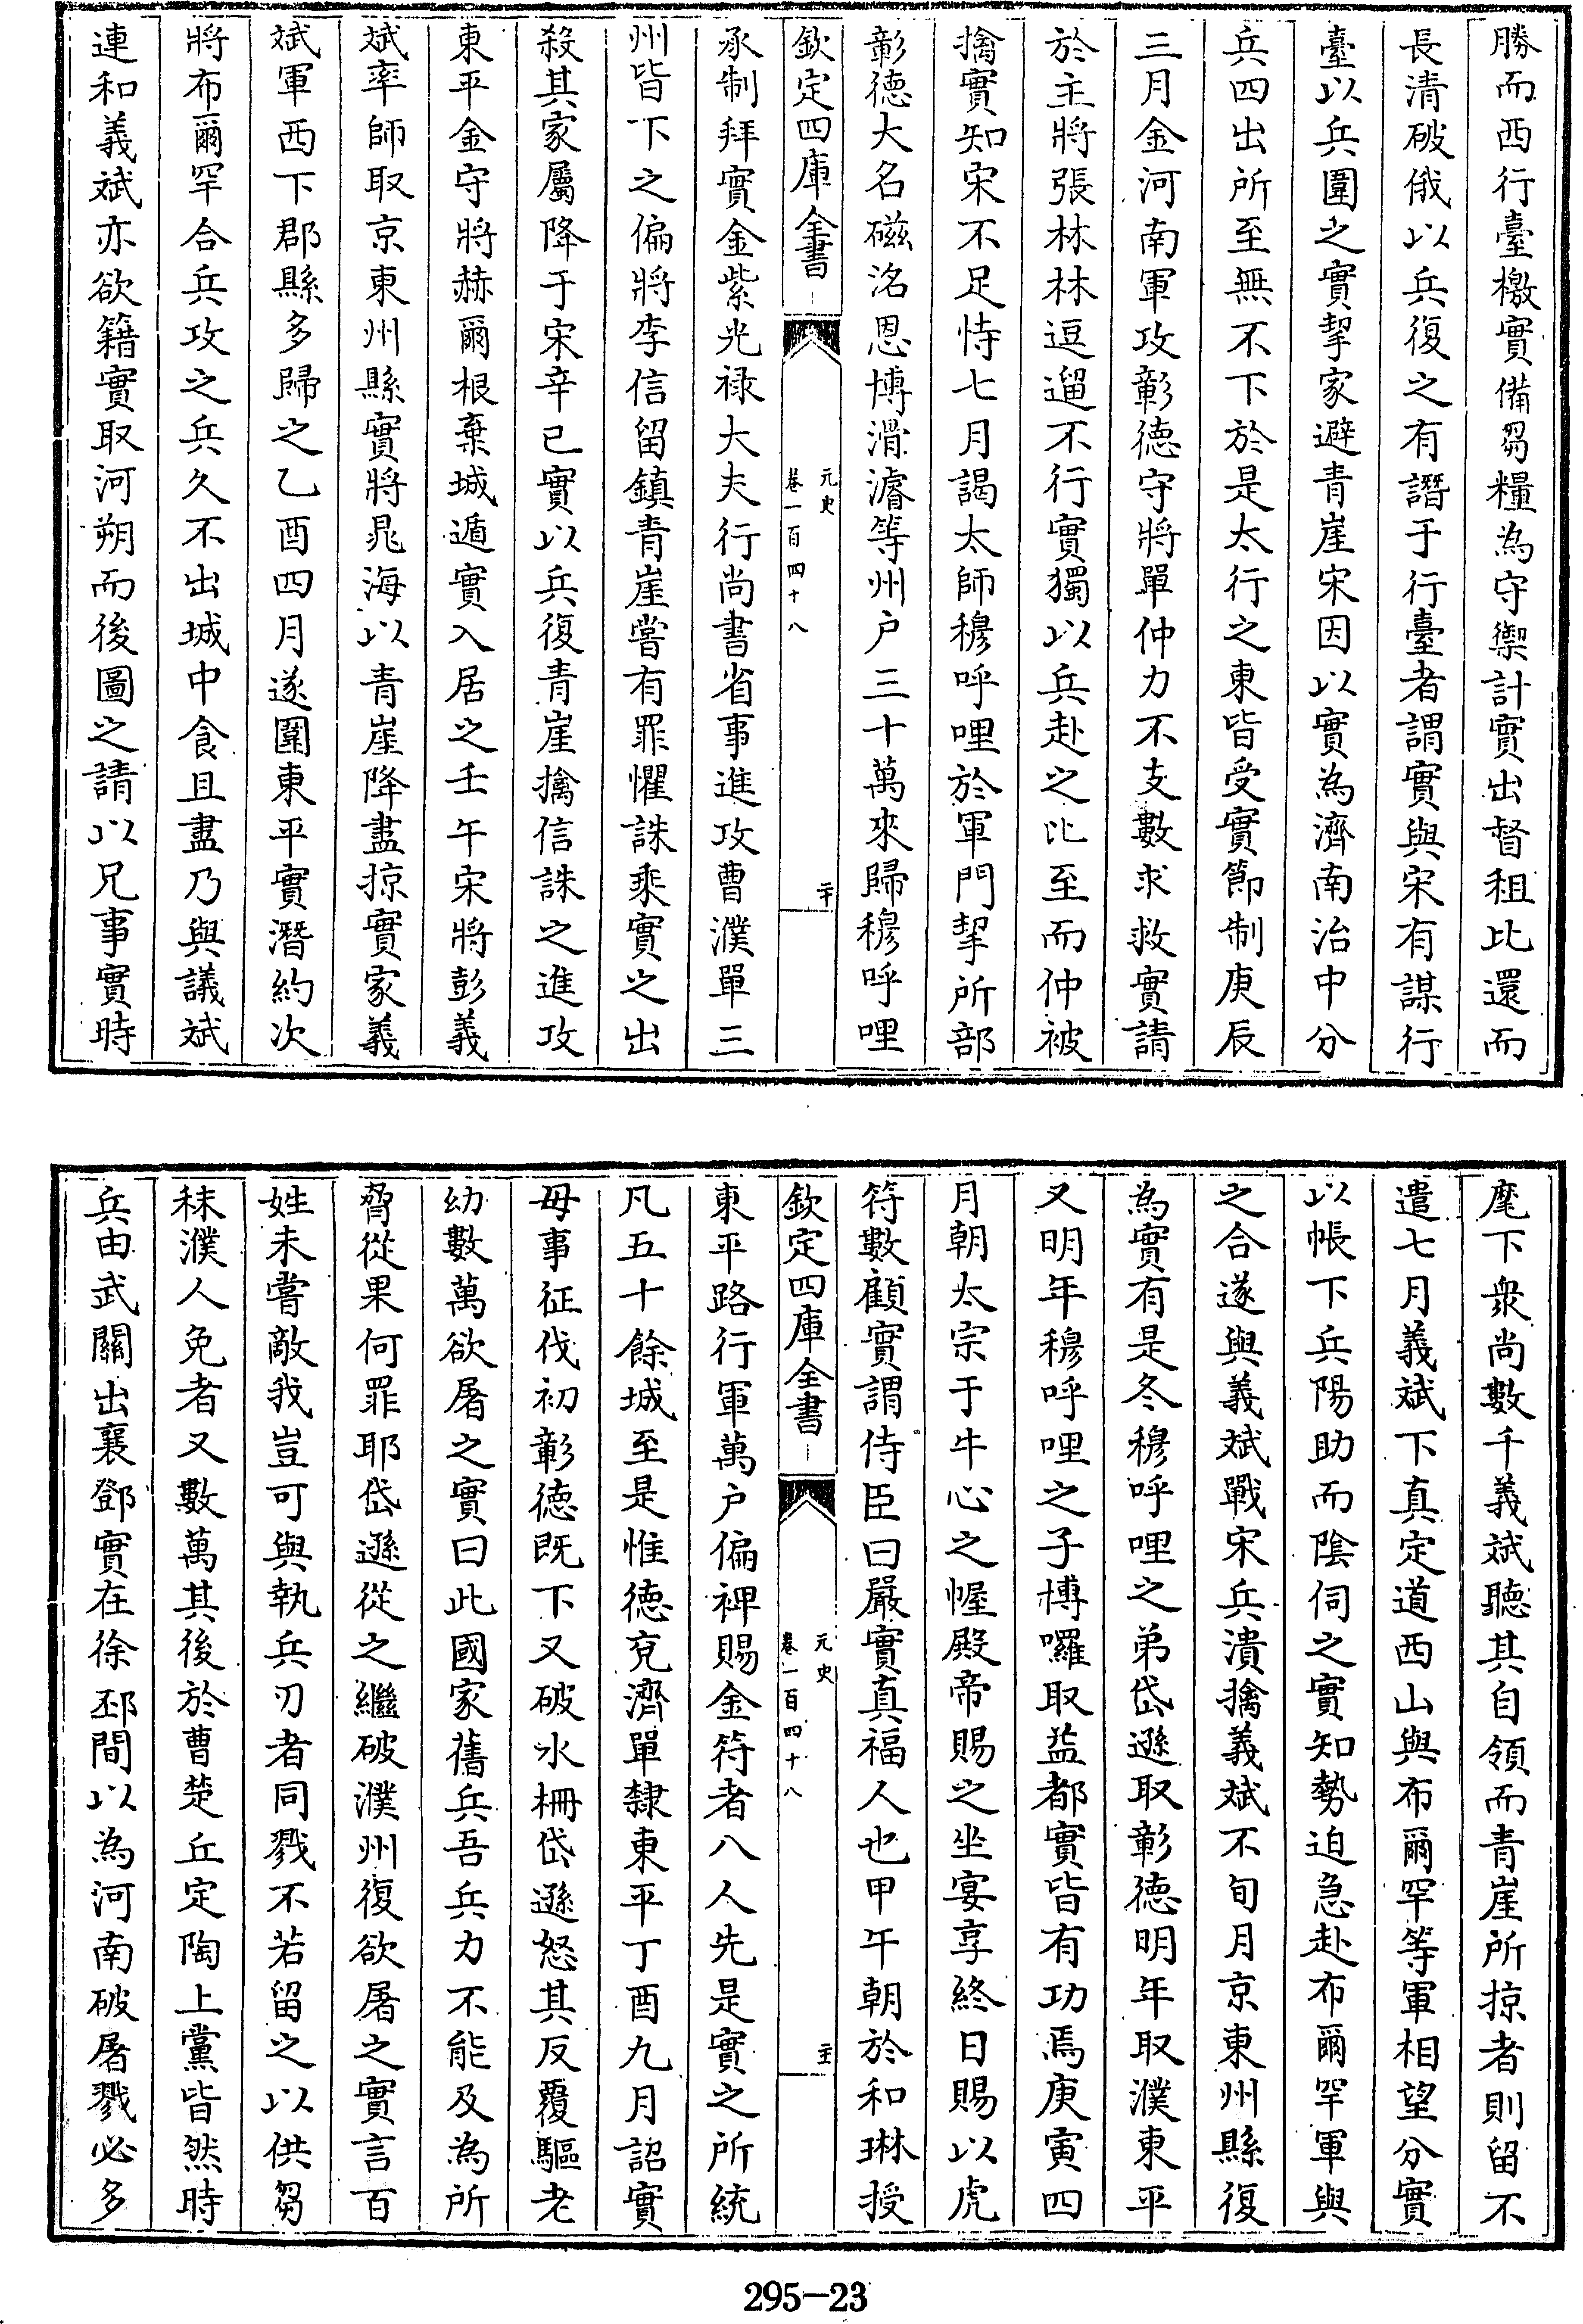 勝而西行臺檄實備芻糧為守禦計實出督租比還而
長清破俄以兵復之有譖于行臺者謂實與宋有謀行
臺以兵圍之實挈家避青崖宋因以實為濟南治中分
兵四出所至無不下於是太行之東皆受實節制庚辰
三月金河南軍攻彰德守將單仲力不支數求救實請
於主將張林林逗遛不行實獨以兵赴之比至而仲被
擒實知宋不足恃七月謁太師穆呼哩於軍門挈所部
彰德大名磁洺恩博滑濬等州户三十萬來歸穆呼哩
欽定四庫全書
元史
卷一百四十八
二十
承制拜實金紫光禄大夫行尚書省事進攻曹濮單三
州皆下之偏將李信留鎮青崖嘗有罪懼誅乘實之出
殺其家屬降于宋辛巳實以兵復青崖擒信誅之進攻
東平金守將赫爾根棄城遁實入居之壬午宋將彭義
斌率師取京東州縣實將晁海以青崖降盡掠實家義
斌軍西下郡縣多歸之乙酉四月遂圍東平實潛約次
將布爾罕合兵攻之兵久不出城中食且盡乃與議斌
連和義斌亦欲籍實取河朔而後圖之請以兄事實時
麾下衆尚數千義斌聽其自領而青崖所掠者則留不
遣七月義斌下真定道西山與布爾罕等軍相望分實
以帳下兵陽助而陰伺之實知勢迫急赴布爾罕軍與
之合遂與義斌戰宋兵潰擒義斌不旬月京東州縣復
為實有是冬穆呼哩之弟岱遜取彰德明年取濮東平
又明年穆呼哩之子博囉取益都實皆有功焉庚寅四
月朝太宗于牛心之幄殿帝賜之坐宴享終日賜以虎
符數顧實謂侍臣曰嚴實真福人也甲午朝於和琳授
欽定四庫全書
元史
卷一百四十八
二十一
東平路行軍萬户偏裨賜金符者八人先是實之所統
凡五十餘城至是惟德兗濟單隸東平丁酉九月詔實
毋事征伐初彰德既下又破水柵岱遜怒其反覆驅老
幼數萬欲屠之實曰此國家舊兵吾兵力不能及為所
脅從果何罪耶岱遜從之繼破濮州復欲屠之實言百
姓未嘗敵我豈可與執兵刃者同戮不若留之以供芻
秣濮人免者又數萬其後於曹楚丘定陶上黨皆然時
兵由武關出襄鄧實在徐邳間以為河南破屠戮必多
295-23